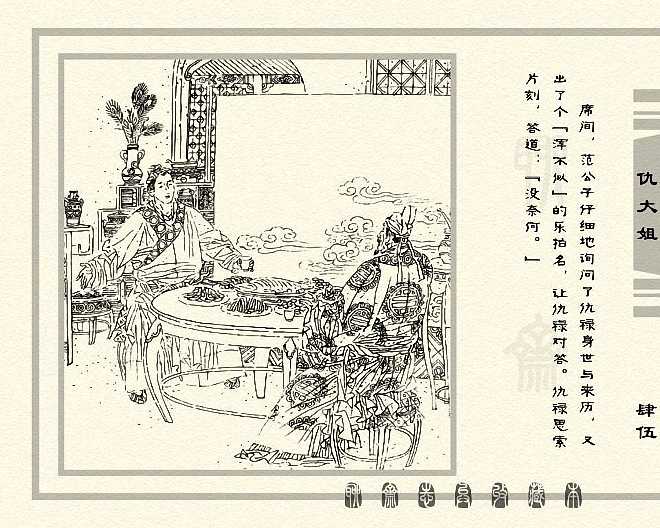 席间，范公子仔细地询问了仇禄身世与来历，又
出了个「浑不似」的乐拍名，让仇禄对答。仇禄思索
片刻，答道：「没奈何。」
仇大姐
肆伍
聊斋志异收藏本